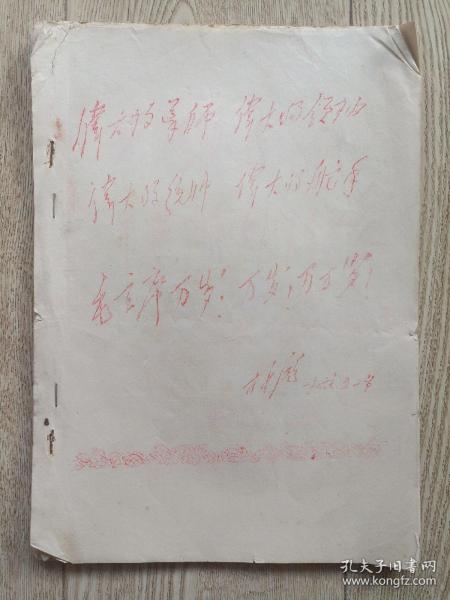 偉大的导师 偉大的领袖
偉大的统帅 偉大的舵手
毛主席万岁!万岁!万万岁!
林彪
孔夫子旧书网
www.kongfz.com